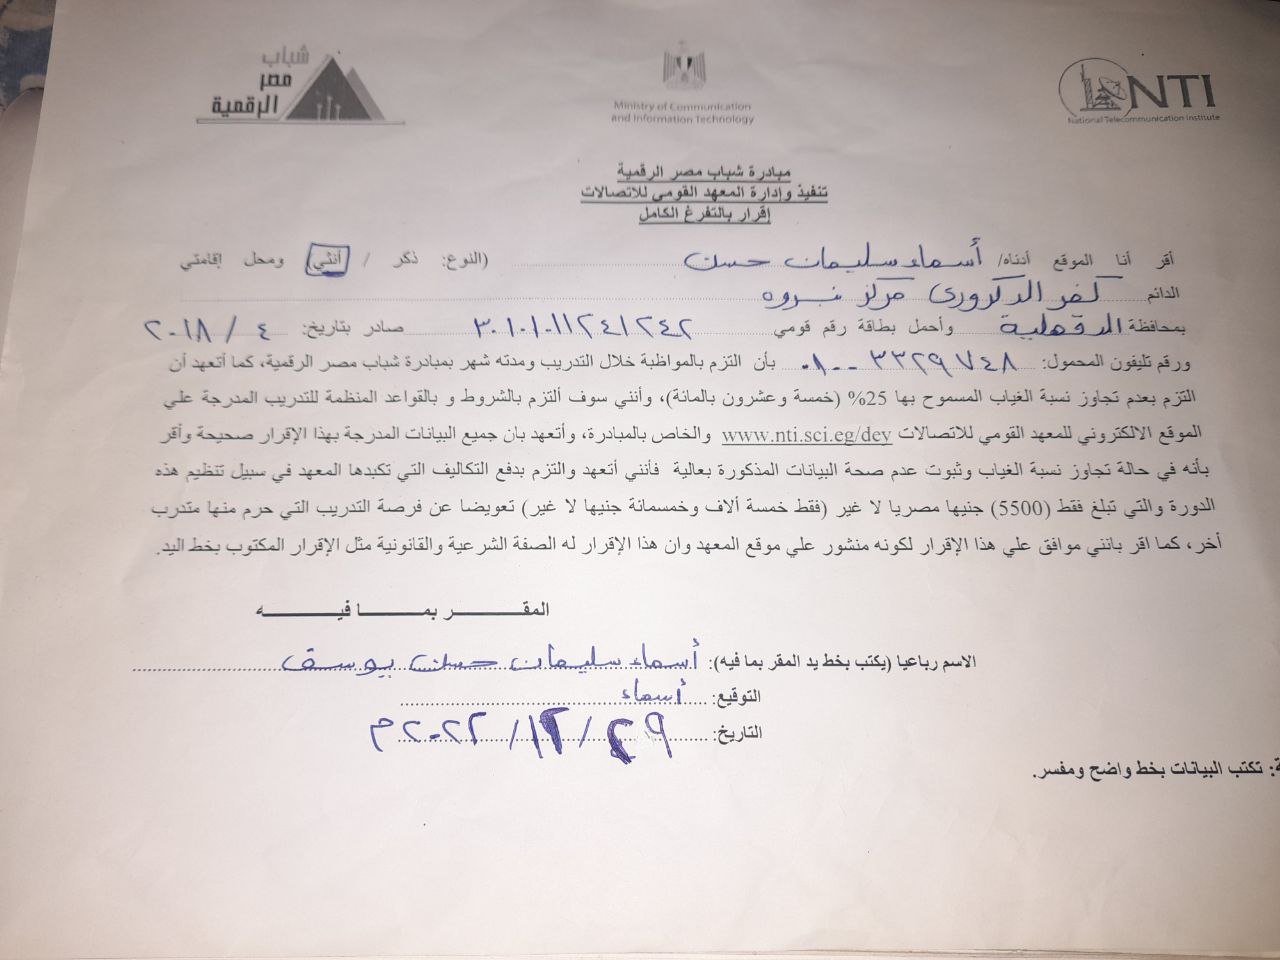 شباب
مصر
الرقمية
Ministry of Communication
and Information Technology
NTI
National Telecommunication Institute
مبادرة شباب مصر الرقمية
تنفيذ وإدارة المعهد القومي للاتصالات
إقرار بالتفرغ الكامل
أقر أنا الموقع أدناه/ أسماء سليمان حسن (النوع: ذكر / أنثي) ومحل إقامتي
الدائم كفر الدكرورى مركز نبروه
بمحافظة الدقهلية وأحمل بطاقة رقم قومي ٣٠١٠١٠١١٢٤١٢٤٢ صادر بتاريخ: ٤ / ٢٠١٨
ورقم تليفون المحمول: ٠١٠٠٣٣٢٩٧٤٨ بأن التزم بالمواظبة خلال التدريب ومدته شهر بمبادرة شباب مصر الرقمية، كما أتعهد أن
التزم بعدم تجاوز نسبة الغياب المسموح بها 25% (خمسة وعشرون بالمائة)، وأنني سوف ألتزم بالشروط و بالقواعد المنظمة للتدريب المدرجة علي
الموقع الالكتروني للمعهد القومي للاتصالات www.nti.sci.eg/dey والخاص بالمبادرة، وأتعهد بان جميع البيانات المدرجة بهذا الإقرار صحيحة وأقر
بأنه في حالة تجاوز نسبة الغياب وثبوت عدم صحة البيانات المذكورة بعالية فأنني أتعهد والتزم بدفع التكاليف التي تكبدها المعهد في سبيل تنظيم هذه
الدورة والتي تبلغ فقط (5500) جنيها مصريا لا غير (فقط خمسة ألاف وخمسمائة جنيها لا غير) تعويضا عن فرصة التدريب التي حرم منها متدرب
أخر، كما اقر بانني موافق علي هذا الإقرار لكونه منشور علي موقع المعهد وان هذا الإقرار له الصفة الشرعية والقانونية مثل الإقرار المكتوب بخط اليد.
المقـــــــر بمـــــــا فيـــــــه
الاسم رباعيا (يكتب بخط يد المقر بما فيه): أسماء سليمان حسن يوسف
التوقيع: أسماء
التاريخ: ٢٩ / ١٢ / ٢٠٢٢م
ة: تكتب البيانات بخط واضح ومفسر.